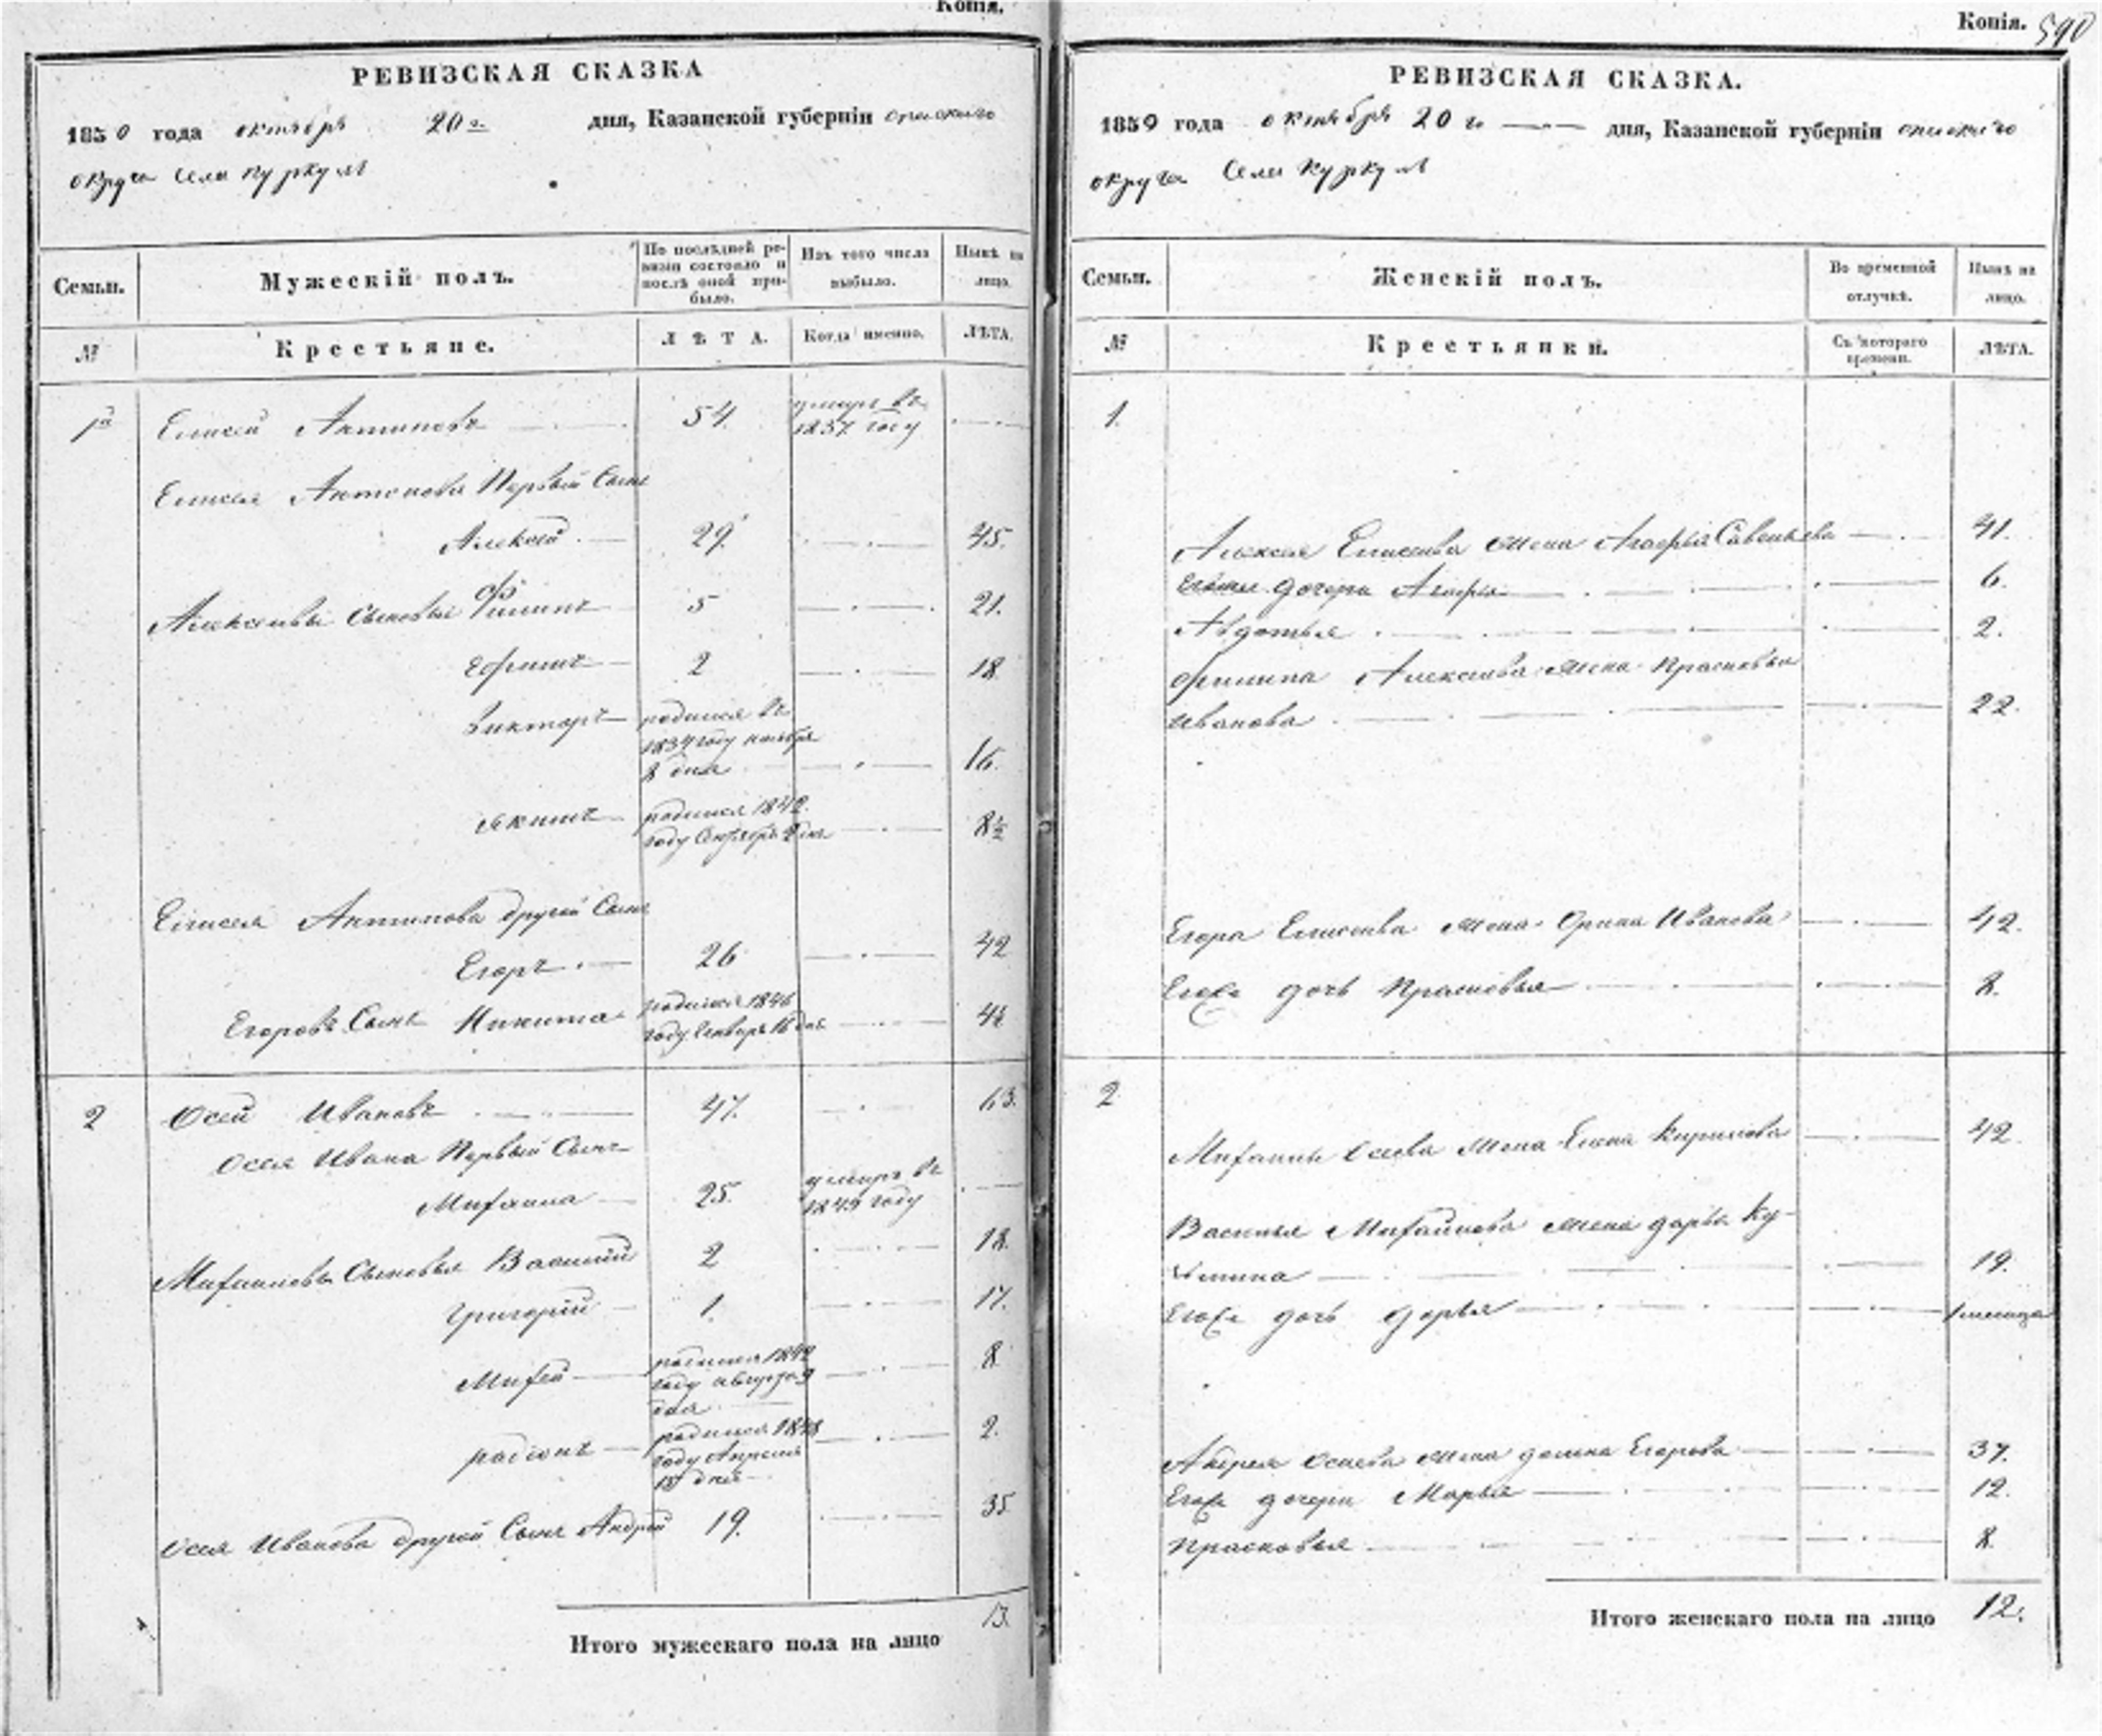 Копія.
РЕВИЗСКАЯ СКАЗКА
1850 года октября 20го дня, Казанской губерніи спаскаго
округа Села Куркуль
Семьи.
Мужескій полъ.
По послѣдней ревизіи состояло и послѣ оной прибыло.
Изъ того числа выбыло.
Нынѣ на лицо.
№
Крестьяне.
ЛѢТА.
Когда именно.
ЛѢТА.
1й Елисей Антиповъ 54. умеръ въ 1837 году
Елисея Антипова Первый Сынъ
Алексей 29. 45.
Алексеевы Сыновья Филипъ 5 21.
Ефимъ 2 18
Викторъ родился въ 1834 году ноября 8 дня 16.
Якимъ родился 1842 году Сентябрь дня 8½
Елисея Антипова другой Сынъ
Егоръ 26 42
Егоровъ Сынъ Никита родился 1846 году Генварь 16 дня 4½
2 Осей Ивановъ 47. 63.
Осея Ивана Первый Сынъ
Михаила 25. умеръ въ 1849 году
Михаиловы Сыновья Василий 2 18.
Григорий 1. 17.
Михей родился 1842 году августа 9 дня 8
родионъ родился 1848 году Апреля 15 дня 2.
Осея Иванова другой Сынъ Андрей 19. 35
Итого мужескаго пола на лицо 13.
Копія. 590
РЕВИЗСКАЯ СКАЗКА.
1850 года октября 20го дня, Казанской губерніи спаскаго
округа Села Куркуль
Семьи.
Женскій полъ.
Во временной отлучкѣ.
Нынѣ на лицо.
№
Крестьянки.
Съ котораго времени.
ЛѢТА.
1.
Алексея Елисеева жена Агафья Савельева 41.
Егоже дочери Агафья 6.
Авдотья 2.
Филипа Алексеева жена Прасковья
Иванова 22.
Егора Елисеева жена Орина Иванова 42.
Егоже дочь Прасковья 8.
2
Михаила Осеева жена Елена Кирилова 42
Василья Михайлова жена дарья Ку-
зьмина 19.
Егоже дочь дарья 1 месяца
Андрея Осиева жена домна Егорова 37.
Егоже дочери Марья 12.
Прасковья 8.
Итого женскаго пола на лицо 12.